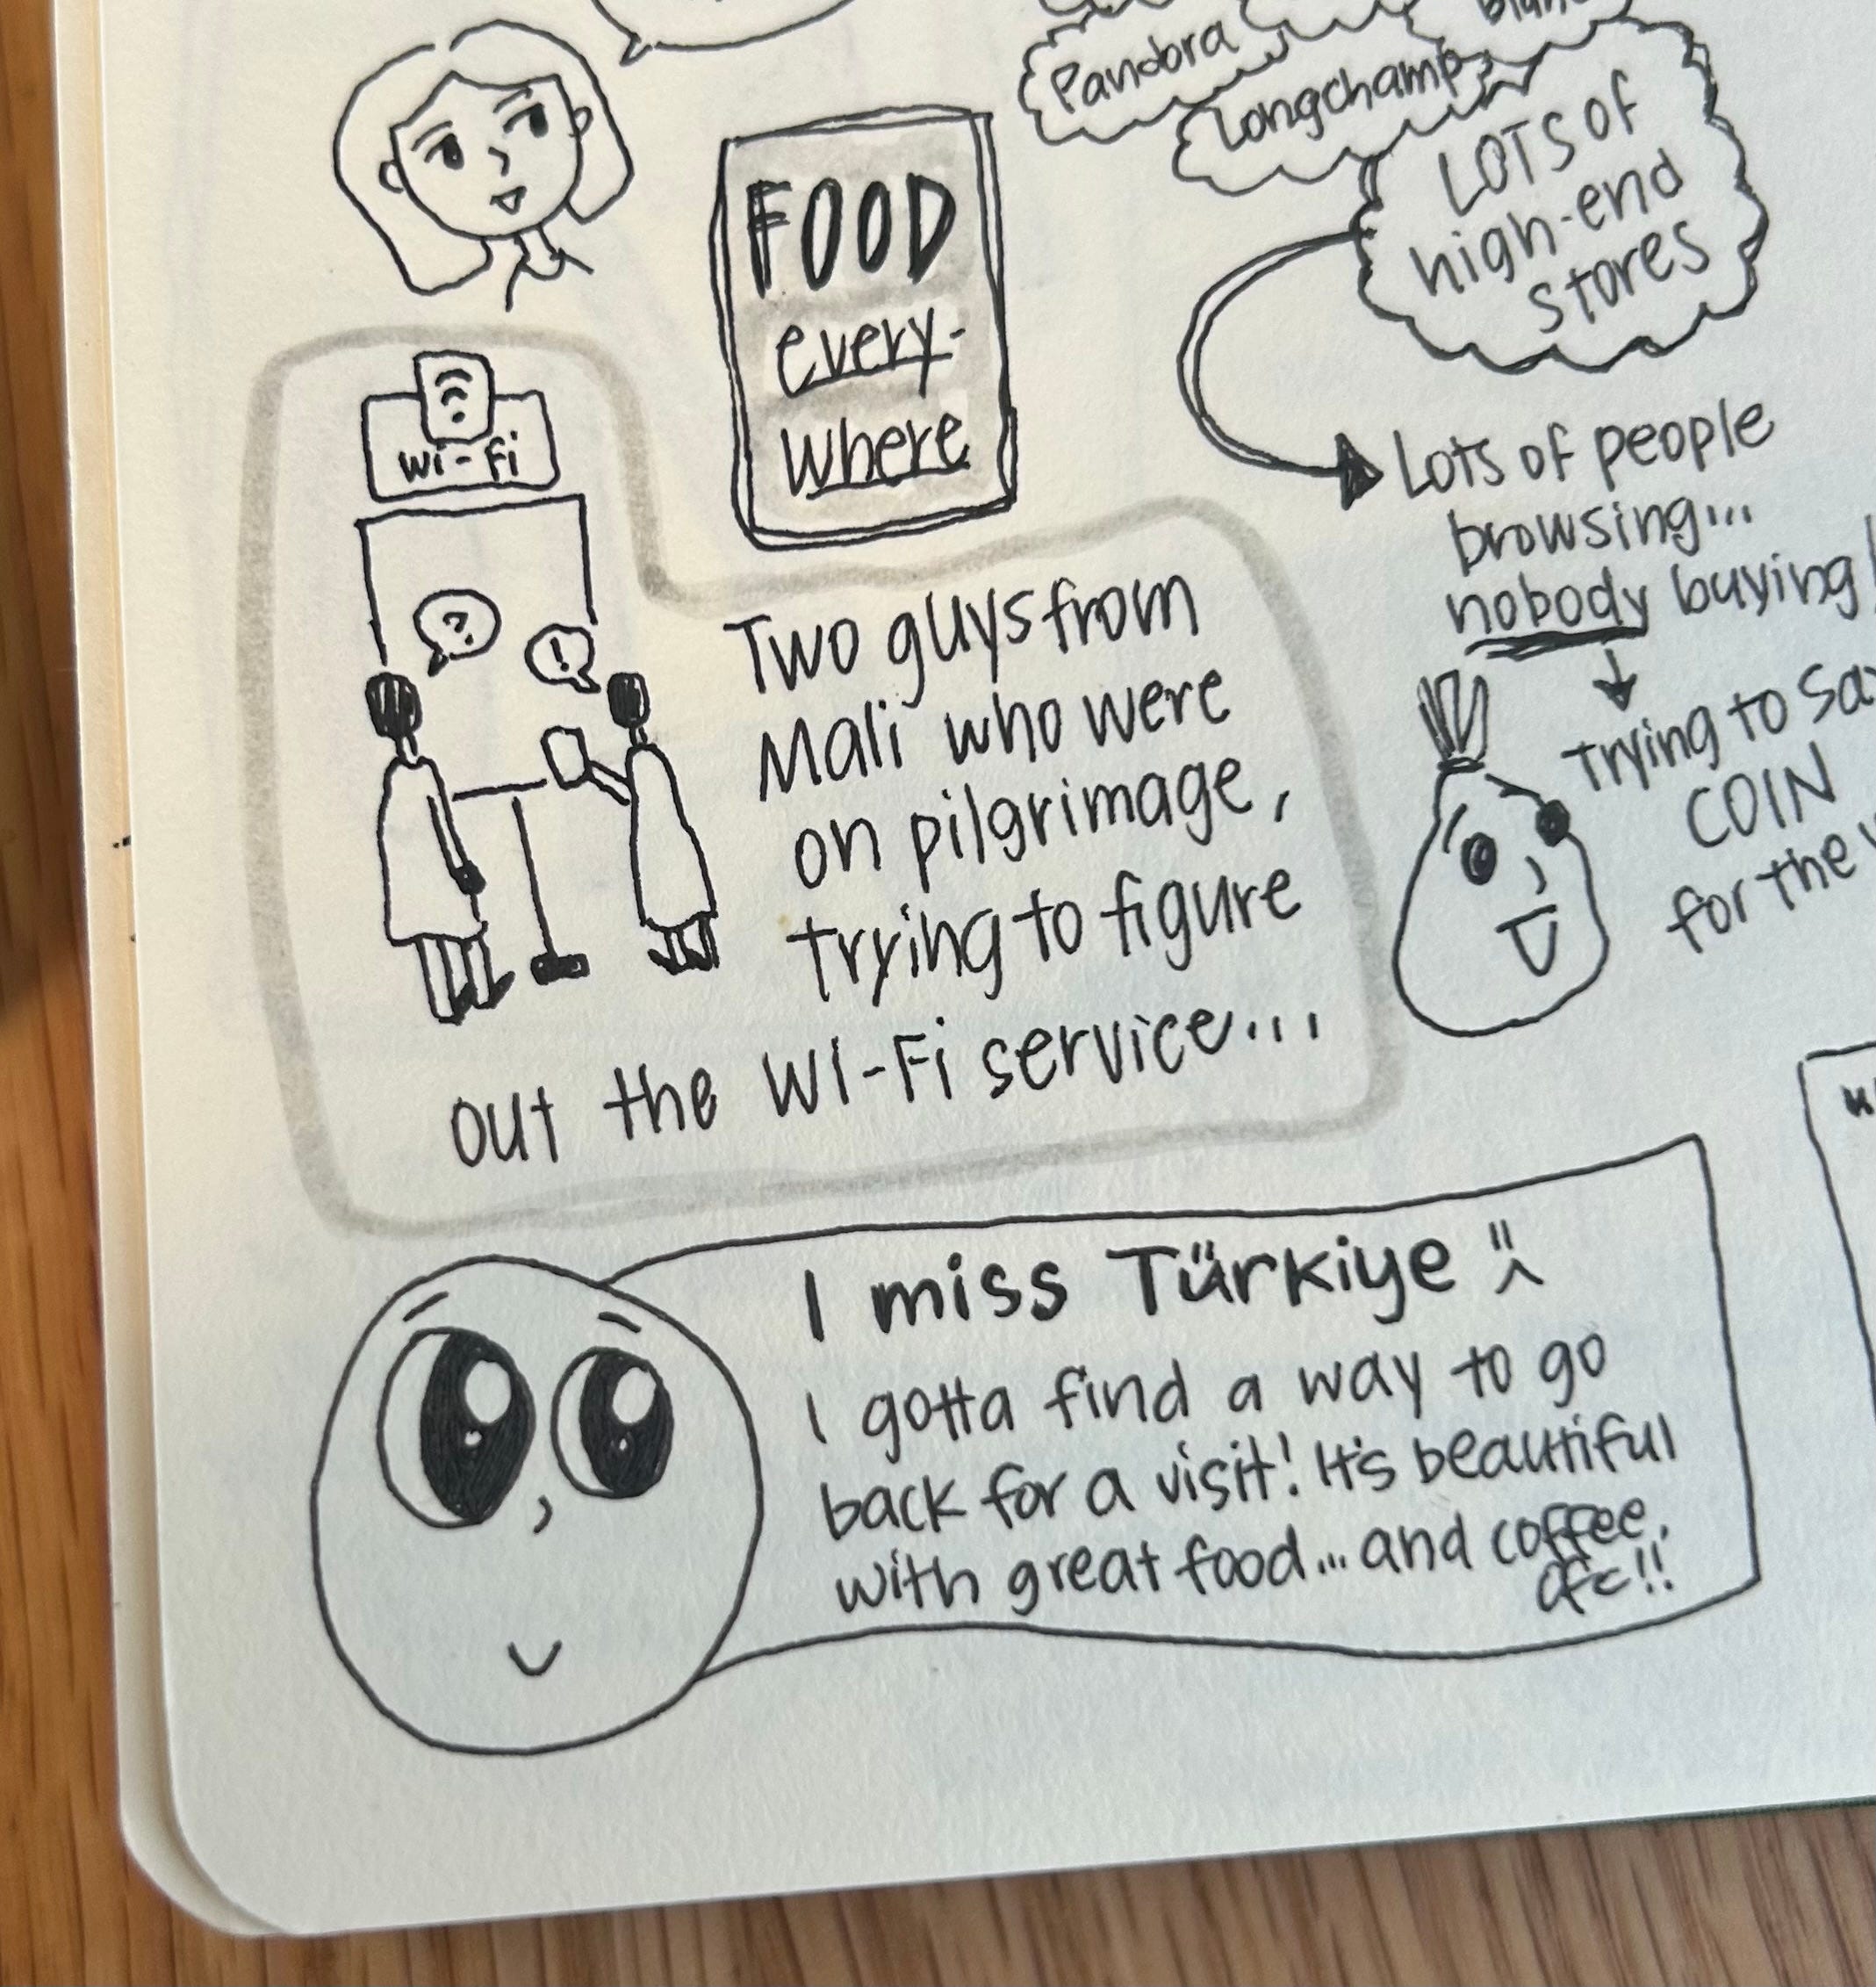 Pandora
Longchamp
LOTS OF
high-end
stores
FOOD
every-
where
Lots of people
browsing...
nobody buying
Trying to
COIN
for the
wi-fi
?
!
Two guys from
Mali who were
on pilgrimage,
trying to figure
out the Wi-Fi service...
I miss Türkiye
I gotta find a way to go
back for a visit! It's beautiful
with great food... and coffee,
ofc!!